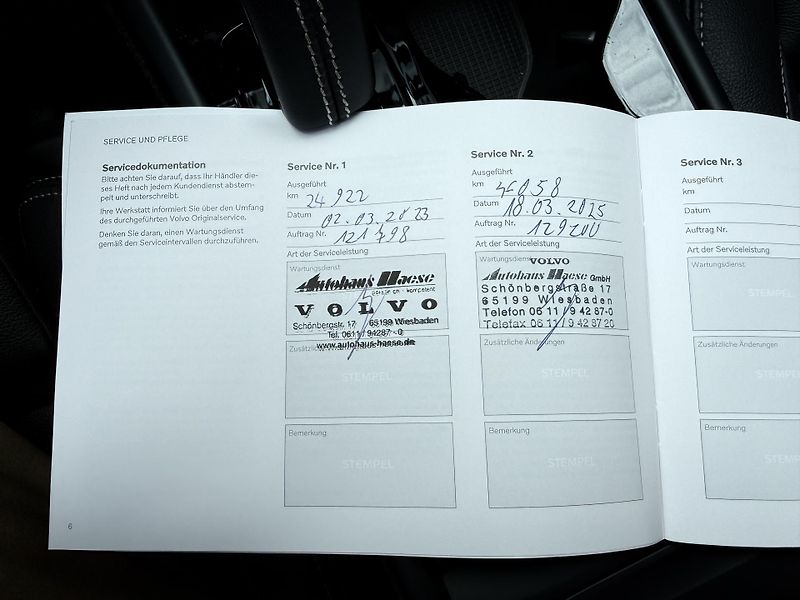 SERVICE UND PFLEGE
Servicedokumentation
Bitte achten Sie darauf, dass Ihr Händler die-
ses Heft nach jedem Kundendienst abstem-
pelt und unterschreibt.
Ihre Werkstatt informiert Sie über den Umfang
des durchgeführten Volvo Originalservice.
Denken Sie daran, einen Wartungsdienst
gemäß den Serviceintervallen durchzuführen.
6
Service Nr. 1
Ausgeführt
km 24 922
Datum 02.03.2023
Auftrag Nr. 121798
Art der Serviceleistung
Wartungsdienst
Autohaus Haese
VOLVO
Schönbergstr. 17 65199 Wiesbaden
Tel. 0611/94287-0
www.autohaus-haese.de
Zusätzliche
STEMPEL
Bemerkung
STEMPEL
Service Nr. 2
Ausgeführt
km 46058
Datum 18.03.2025
Auftrag Nr. 129200
Art der Serviceleistung
Wartungsdienst
VOLVO
Autohaus Haese GmbH
Schönbergstraße 17
65199 Wiesbaden
Telefon 06 11 / 9 42 87-0
Telefax 06 11 / 9 42 87 20
Zusätzliche Änderungen
STEMPEL
Bemerkung
STEMPEL
Service Nr. 3
Ausgeführt
km
Datum
Auftrag Nr.
Art der Serviceleistung
Wartungsdienst
STEMPEL
Zusätzliche Änderungen
STEMPEL
Bemerkung
STEMPEL